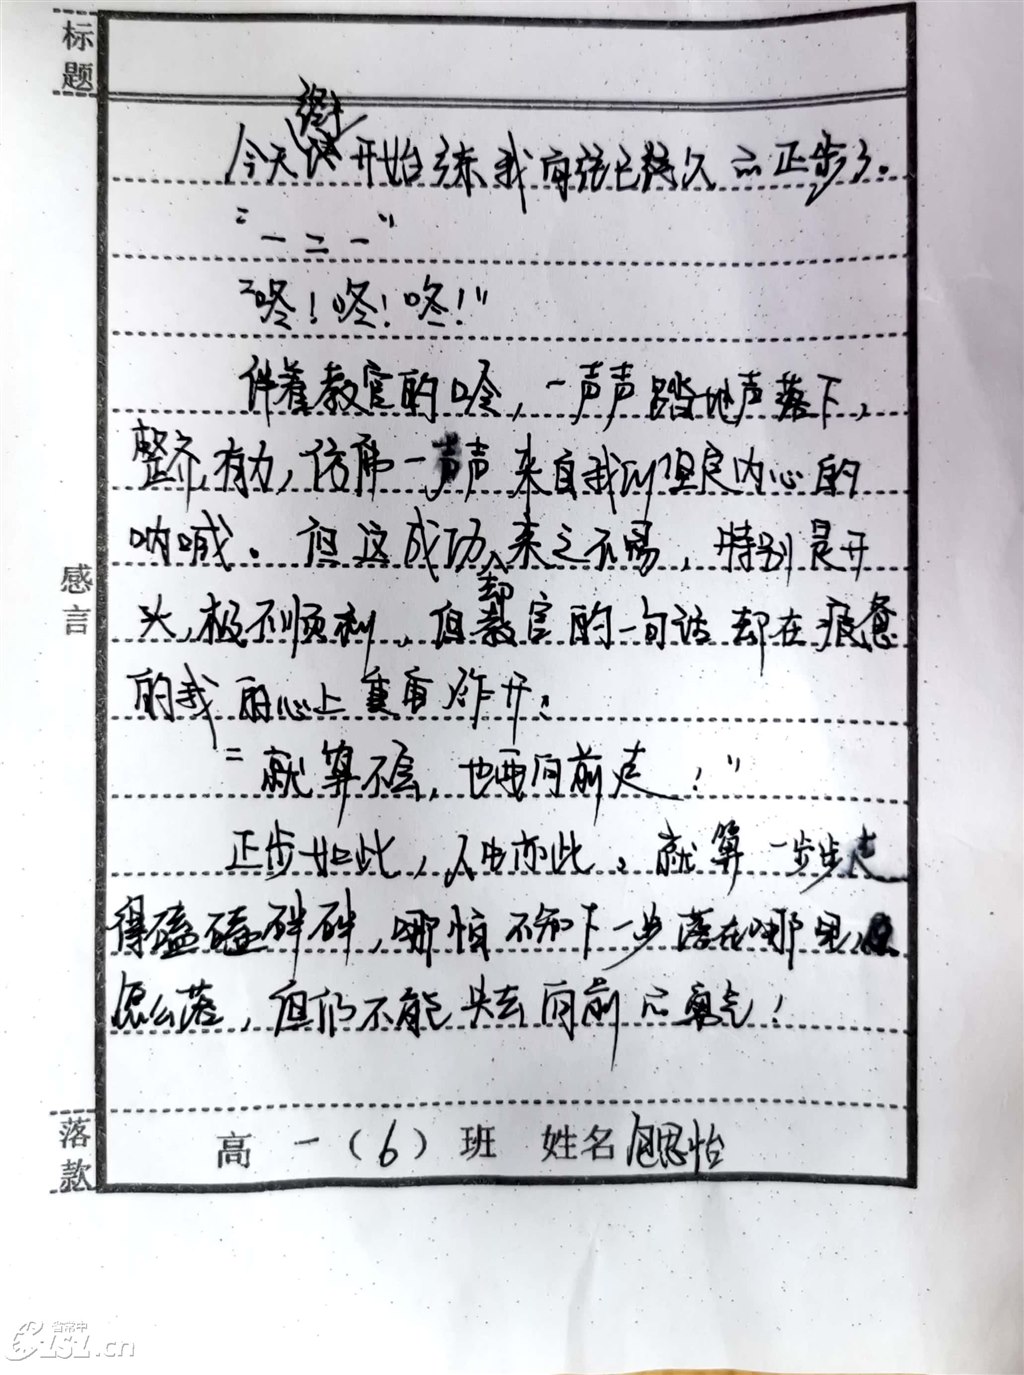 标题
终于
今天 开始练我向往已持久的正步了。
“一二一”
“咚！咚！咚！”
伴着教官的口令，一声声踏地声落下，
整齐，有力，仿佛一声声来自我们坚定内心的
呐喊。但这成功却来之不易，特别是开
头，极不顺利，但教官的一句话却在疲惫
的我的心上重重炸开：
“就算不会，也要向前走！”
正步如此，人生亦此。就算一步步走
得磕磕碰碰，哪怕不知下一步落在哪里，
怎么落，但仍不能失去向前的勇气！
感言
落款
高一（6）班 姓名 包思怡
省常中
LSL.cn